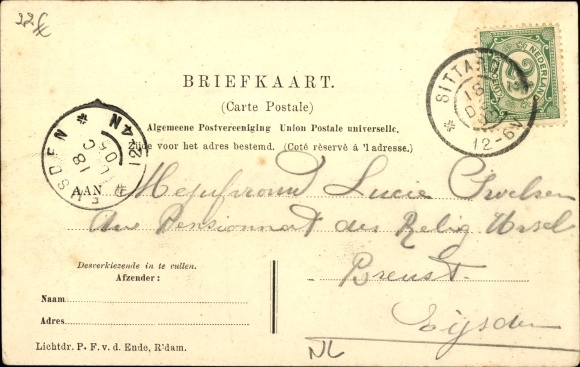 22 €
BRIEFKAART.
(Carte Postale)
Algemeene Postvereeniging Union Postale universelle.
Zijde voor het adres bestemd. (Coté réservé á 'l adresse.)
AAN
NEDERLAND
2½
SITTARD
18
12-6V
18
12
AN
Mejufvround Lucie
Au Pensionnat des Relig Ursel
Breust.
Eijsden
Desverkiezende in te vullen.
Afzender:
Naam
Adres
Lichtdr. P. F. v. d. Ende, R'dam.
NL